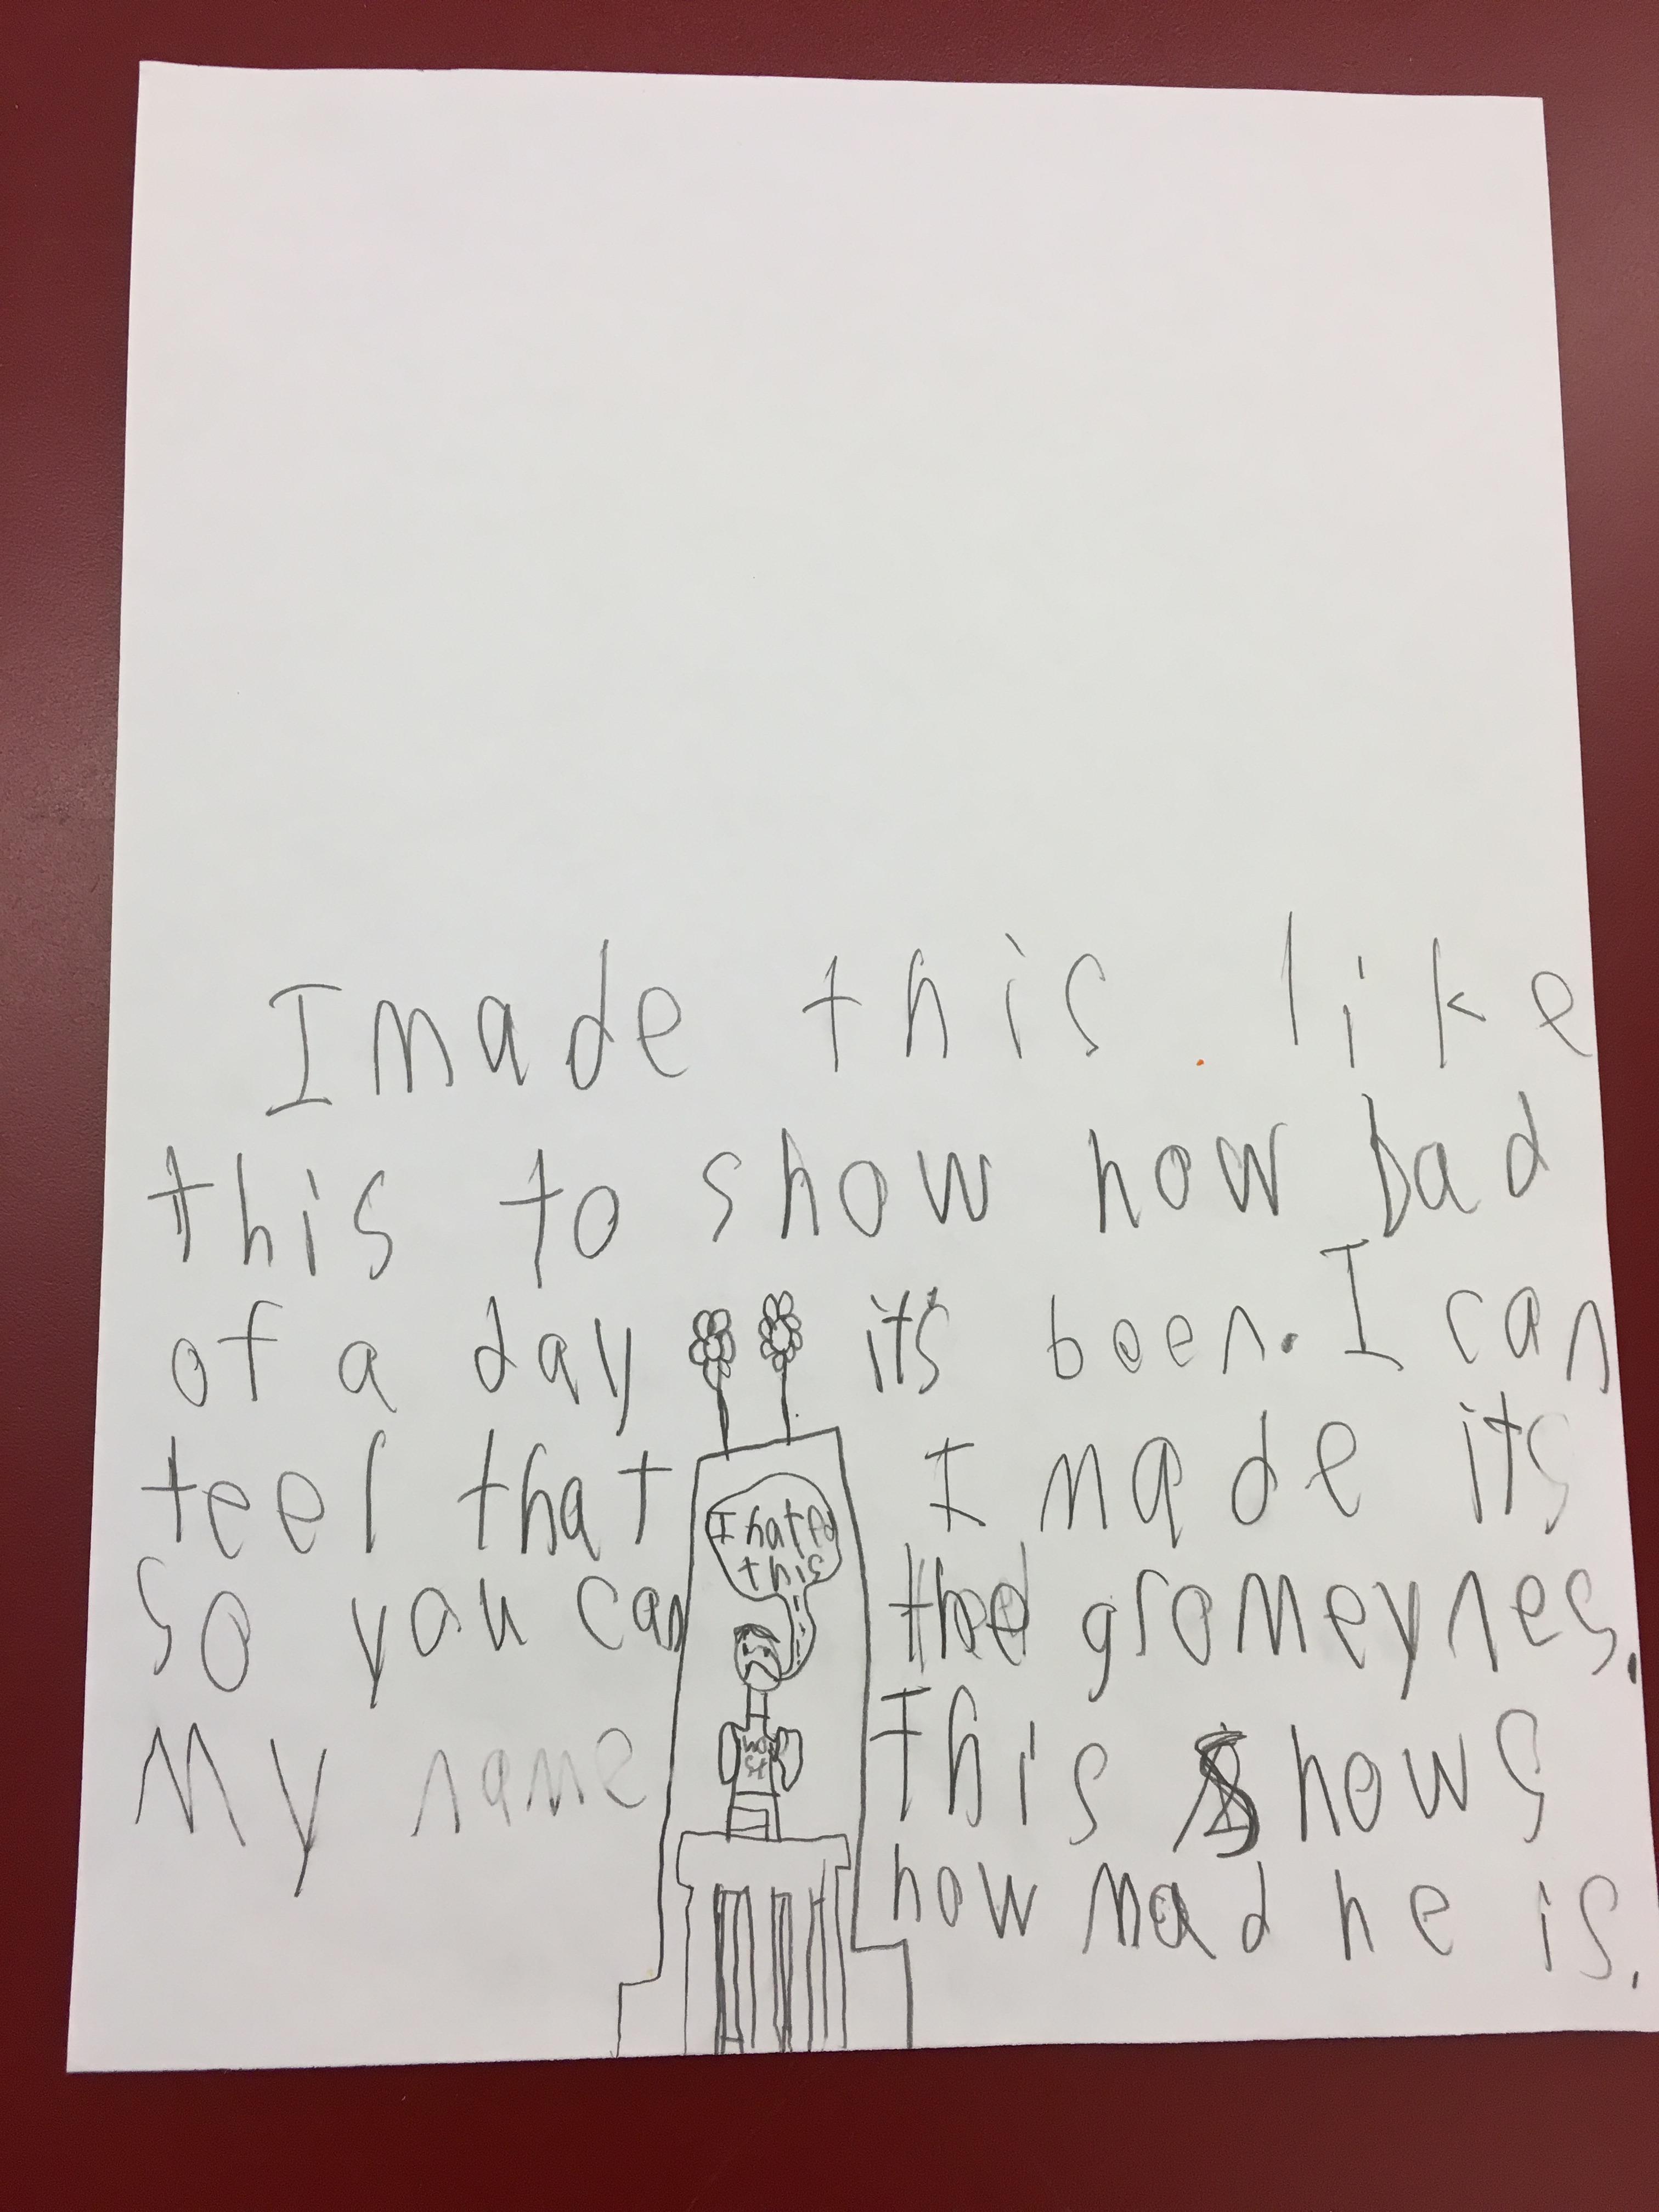 I made this like
this to show how bad
of a day it's been. I can
feel that I made its
so you can the gromeynes.
My name This shows
how mad he is.
I hated
this